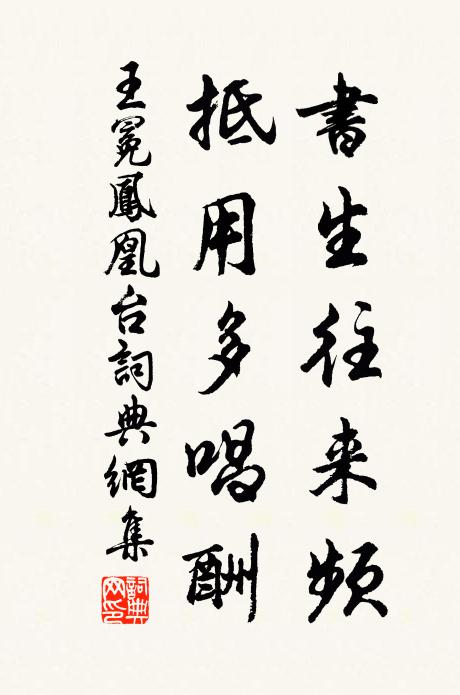 書生往来頻
抵用多唱酬
王冕鳳凰台詞典網集
詞典網印